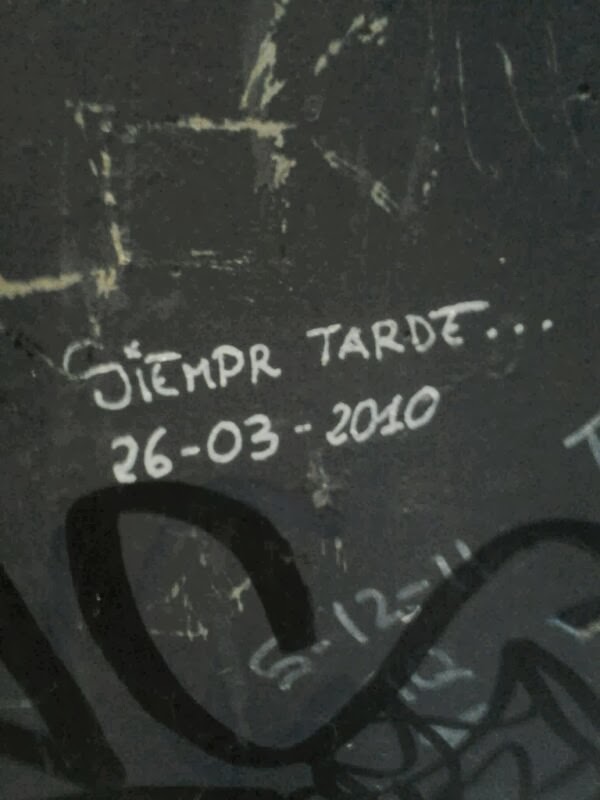 SiEMPR TARDE...
26-03-2010
5-12-11